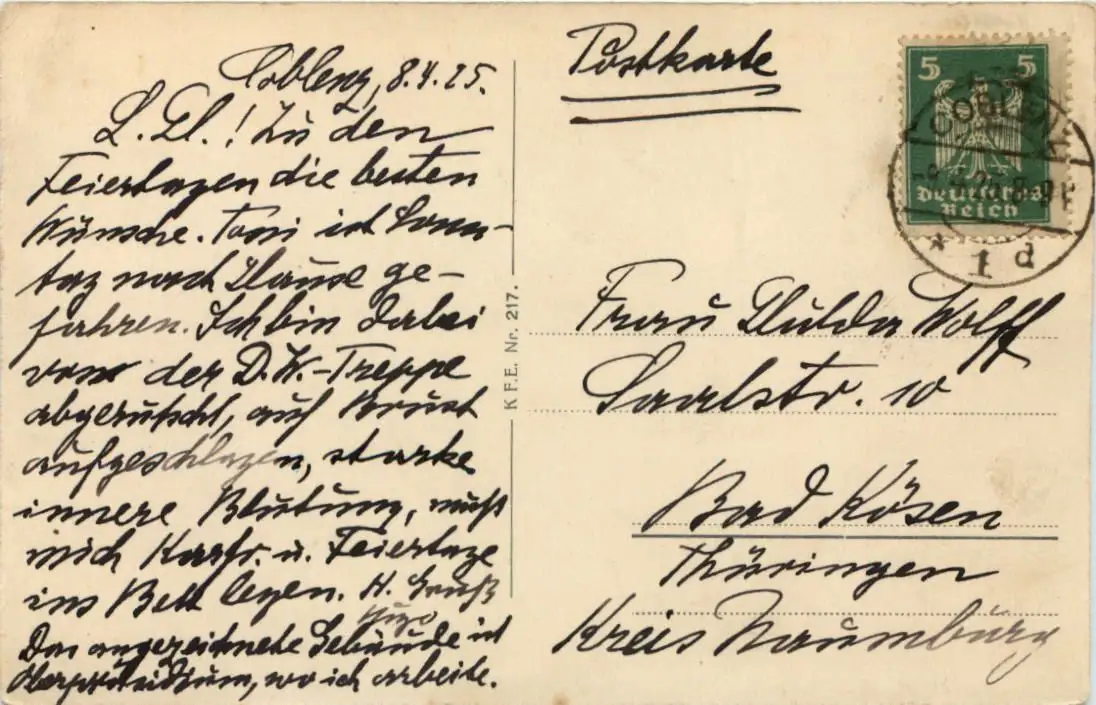 Coblenz, 8.4.25.
L. Hl.! Zu den
Feiertagen die besten
Wünsche. Toni ist Sonn-
tag nach Hause ge-
fahren. Ich bin dabei
von der D.W.-Treppe
abgerutscht, auf Brust
aufgeschlagen, starke
innere Blutung, muß
mich Karfr. u. Feiertage
ins Bett legen. H. Gruß
Hugo
Das angezeichnete Gebäude ist
Oberpräsidium, wo ich arbeite.
K.F.E. Nr. 217.
Postkarte
5 5
COBLENZ
Deutsches
Reich
* 1 d
Frau Hulda Wolff
Saalstr. 10
Bad Kösen
Thüringen
Kreis Naumburg